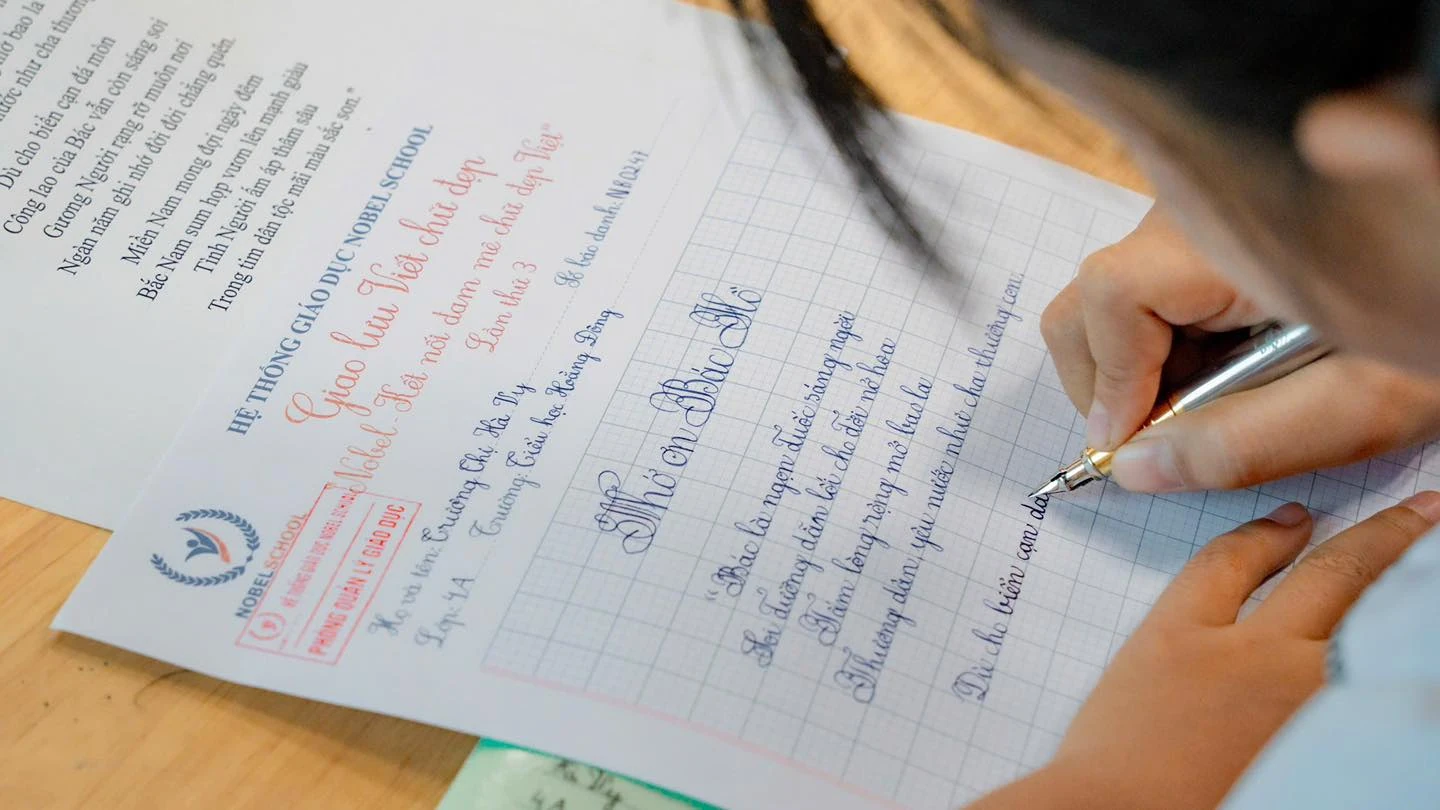 bao la
nước như cha thương
Dù cho biển cạn đá mòn
Công lao của Bác vẫn còn sáng soi
Gương Người rạng rỡ muôn nơi
Ngàn năm ghi nhớ đời đời chẳng quên.
Miền Nam mong đợi ngày đêm
Bắc Nam sum họp vươn lên mạnh giàu
Tình Người ấm áp thắm sâu
Trong tim dân tộc mãi màu sắc son."
HỆ THỐNG GIÁO DỤC NOBEL SCHOOL
Giao lưu Viết chữ đẹp
Nobel - Kết nối đam mê chữ đẹp Việt"
Lần thứ 3
NOBEL SCHOOL
HỆ THỐNG GIÁO DỤC NOBEL SCHOOL
PHÒNG QUẢN LÝ GIÁO DỤC
Họ và tên: Trương Thị Hà Vy
Số báo danh: NBQ247
Lớp: 4A
Trường: Tiểu học Hoằng Đông
Nhớ ơn Bác Hồ
"Bác là ngọn đuốc sáng ngời
Soi đường dẫn lối cho đời nở hoa
Tấm lòng rộng mở bao la
Thương dân, yêu nước như cha thương con.
Dù cho biển cạn đá
Hà Vy
4A